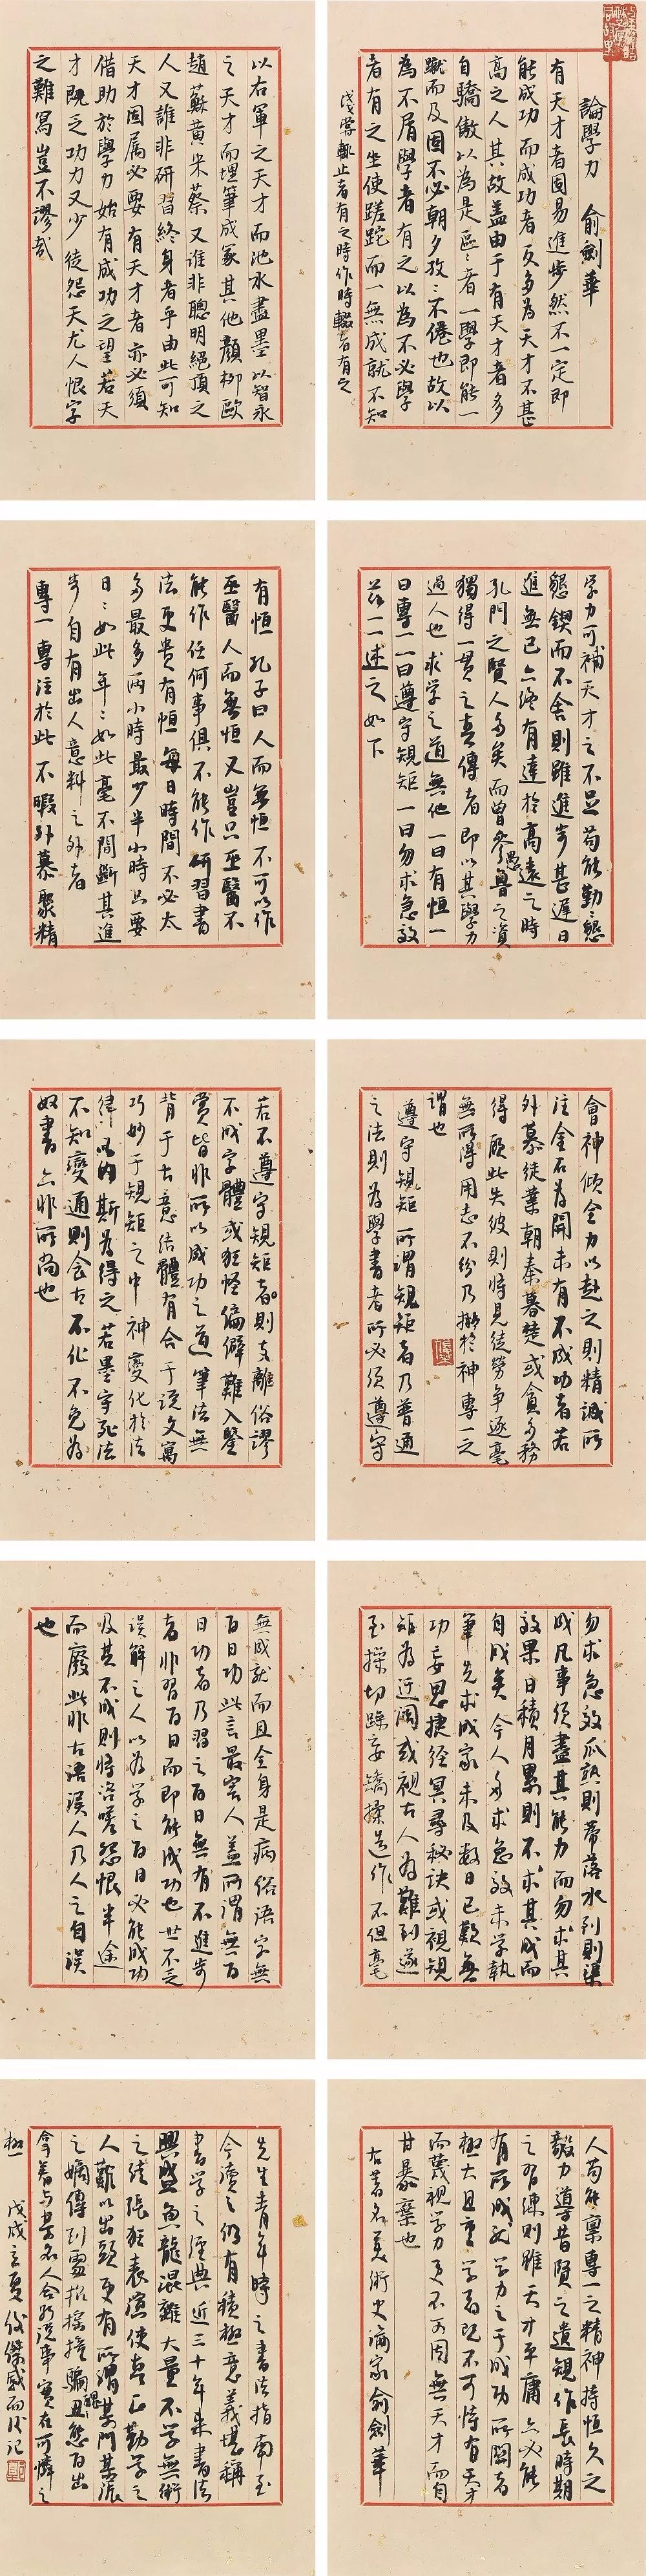 論學力　俞劍華
有天才者固易進步然不一定即
能成功而成功者反多為天才不甚
高之人其故盖由于有天才者多
自驕傲以為是區〻者一學即能一
蹴而及固不必朝夕孜〻不倦也故以
為不屑學者有之以為不必學
者有之坐使蹉跎而一無成就不知
淺嘗輒止者有之時作時輟者有之
以右軍之天才而池水盡墨以智永
之天才而埋筆成冢其他顏柳歐
趙蘇黃米蔡又誰非聰明絕頂之
人又誰非研習終身者乎由此可知
天才固属必要有天才者亦必須
借助於學力始有成功之望若天
才既乏功力又少徒怨天尤人恨字
之難寫豈不謬哉
学力可補天才之不足苟能勤〻懇
懇鍥而不舍則雖進步甚遲日
進無已亦終有達於高遠之時
孔門之賢人多矣而曾參愚魯之資
獨得一貫之真傳者即以其學力
過人也求学之道無他一曰有恒一
曰專一一曰遵守規矩一曰勿求急效
茲一一述之如下
有恒孔子曰人而無恒不可以作
巫醫人而無恒又豈只巫醫不
能作任何事俱不能作研習書
法更贵有恒每日時間不必太
多最多两小時最少半小時只要
日〻如此年〻如此毫不間斷其進
步自有出人意料之外者
專一專注於此不暇外慕聚精
會神傾全力以赴之則精誠所
注金石為開未有不成功者若
外慕徒業朝秦暮楚或貪多務
得顾此失彼則將見徒勞争逐毫
無所得用志不紛乃擬於神專一之
謂也
遵守規矩所謂規矩者乃普通
之法則為學書者所必須遵守
若不遵守規矩者則支離俗謬
不成字體或狂怪偏僻難入鑒
賞皆非所以成功之道筆法無
背于古意結體有合于説文寓
巧妙于規矩之中神變化於法
律以内斯為得之若墨守死法
不知變通則食古不化不免為
奴書亦非所尚也
勿求急效瓜熟則蒂落水到則渠
成凡事須盡其能力而勿求其
效果日積月累則不求其成而
自成矣今人多求急效未学執
筆先求成家未及數日已歎無
功妄思捷徑冥尋秘訣或視規
矩為迂闊或視古人為難到遂
至操切躁妄矯揉造作不但毫
無成就而且全身是病俗語字無
百日功此言最害人盖所謂無百
日功者乃習之百日無有不進步
者非習百日而即能成功也世不乏
误解之人以為学之百日必能成功
及其不成則將咨嗟怨恨半途
而廢此非古語误人乃人之自误
也
人苟能稟專一之精神持恒久之
毅力導昔賢之遺規作長時期
之習練則雖天才平庸亦必能
有所成就学力之于成功所關者
極大且重学者既不可恃有天才
而蔑視学力更不可因無天才而自
甘暴棄也
右書名美術史論家俞劍華
先生青年時之書法指南至
今讀之仍有積極意義堪稱
書学之經典近三十年來書法
興盛魚龍混雜大量不学無術
之徒張狂表演使真正勤学之
人難以出頭更有所谓某門某派
之嫡傳到處招摇撞騙醜態百出
拿着与某名人合影説事實在可憐之
極　戊戌立夏俊傑感而後记